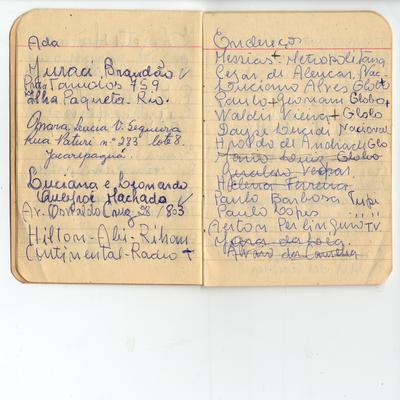 Ada
Juraci Brandão V
Praia Tamoios 759
Ilha Paquetá. Rio.
Mara Lucia V. Siqueira
Rua Paturi nº 233 lote 8
Jacarepaguá.
Luciana e Leonardo
Queiroz Machado
Av. Osvaldo Cruz, 28 / 803
Hilton - Ali - Ribom
Continental - Radio +
Endereços
Messias + Metropolitana
Cezar de Alencar, Nac
Luciano Alves Globo
Paulo + Giovani Globo +
Waldir Vieira + Globo
Dayse Lucidi Nacional
Haroldo de Andrade Glo
Mario Luiz Globo
Helena Ferreira
Paulo Barbosa Tupi
Paulo Lopes " " "
Aerton Perlingeiro TV.